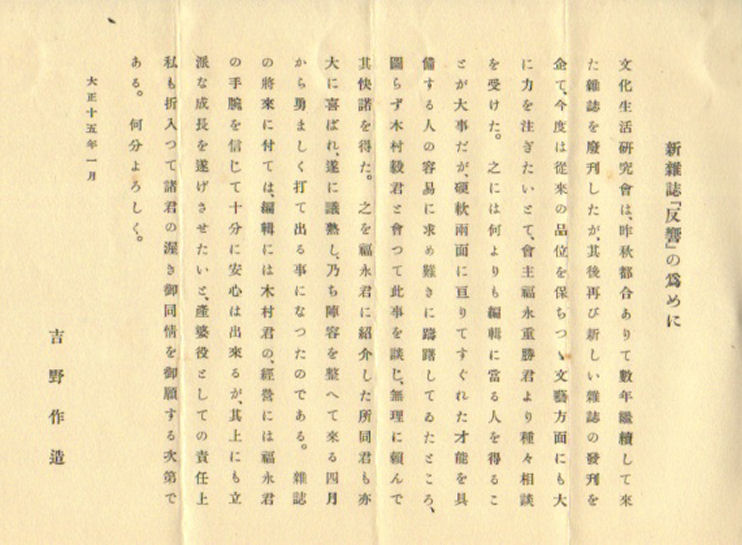 新雜誌『反響』の爲めに
文化生活研究會は、昨秋都合ありて數年繼續して來
た雜誌を廢刊したが、其後再び新しい雜誌の發刊を
企て、今度は從来の品位を保ちつゝ文藝方面にも大
に力を注ぎたいとて、會主福永重勝君より種々相談
を受けた。之には何よりも編輯に當る人を得るこ
とが大事だが、硬軟兩面に亘りてすぐれた才能を具
備する人の容易に求め難きに躊躇してゐたところ、
圖らず木村毅君と會つて此事を談じ、無理に賴んで
其快諾を得た。之を福永君に紹介した所同君も亦
大に喜ばれ、遂に議熟し、乃ち陣容を整へて來る四月
から勇ましく打て出る事になつたのである。雜誌
の將來に付ては、編輯には木村君の、經營には福永君
の手腕を信じて十分に安心は出來るが、其上にも立
派な成長を遂げさせたいと、產婆役としての責任上
私も折入つて諸君の渥き御同情を御願する次第で
ある。何分よろしく。
大正十五年一月
吉野作造